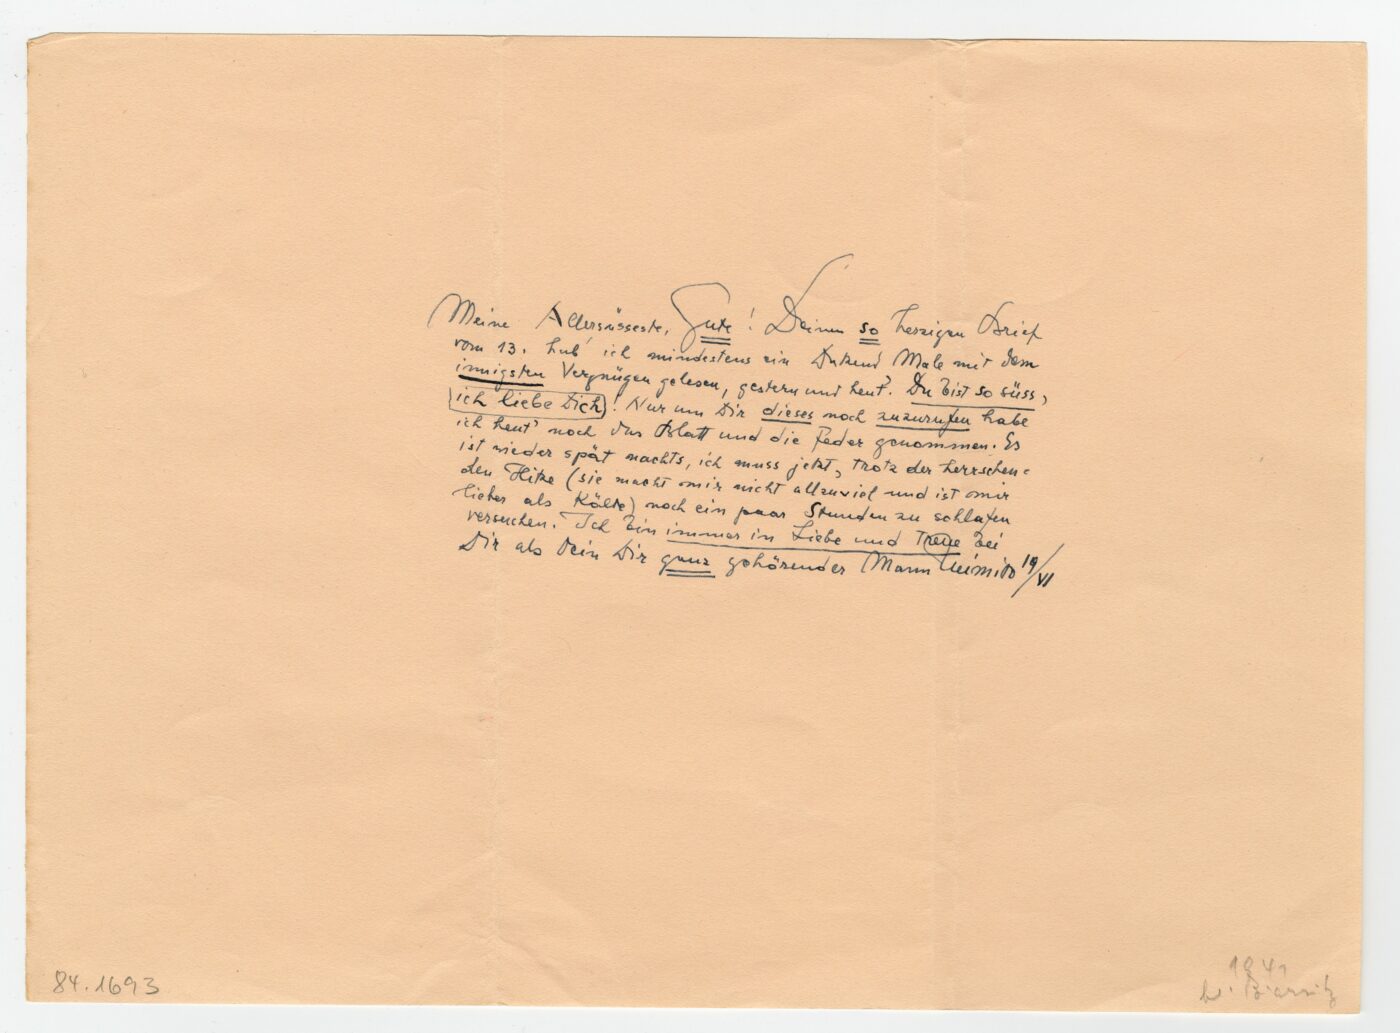 Meine Allersüsseste, Gute! Deinen so herzigen Brief
vom 13. hab' ich mindestens ein Dutzend Male mit dem
innigsten Vergnügen gelesen, gestern und heut'. Du bist so süss,
ich liebe Dich! Nur um Dir dieses noch zuzurufen habe
ich heut' noch das Blatt und die Feder genommen. Es
ist wieder spät nachts, ich muss jetzt, trotz der herrschen=
den Hitze (sie macht mir nicht allzuviel und ist mir
lieber als Kälte) noch ein paar Stunden zu schlafen
versuchen. Ich bin immer in Liebe und Treue bei
Dir als Dein Dir ganz gehörender Mann Heimito 19/VI
84.1693
1941
b. Biarritz